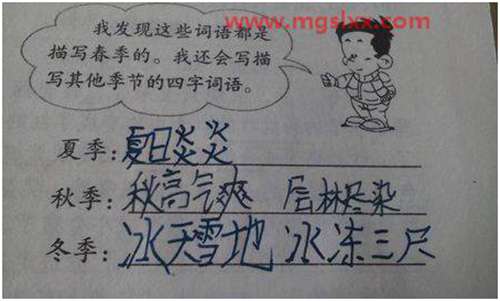 www.mgslxx.com
我发现这些词语都是
描写春季的。我还会写描
写其他季节的四字词语。
夏季:夏日炎炎
秋季:秋高气爽 层林尽染
冬季:冰天雪地 冰冻三尺